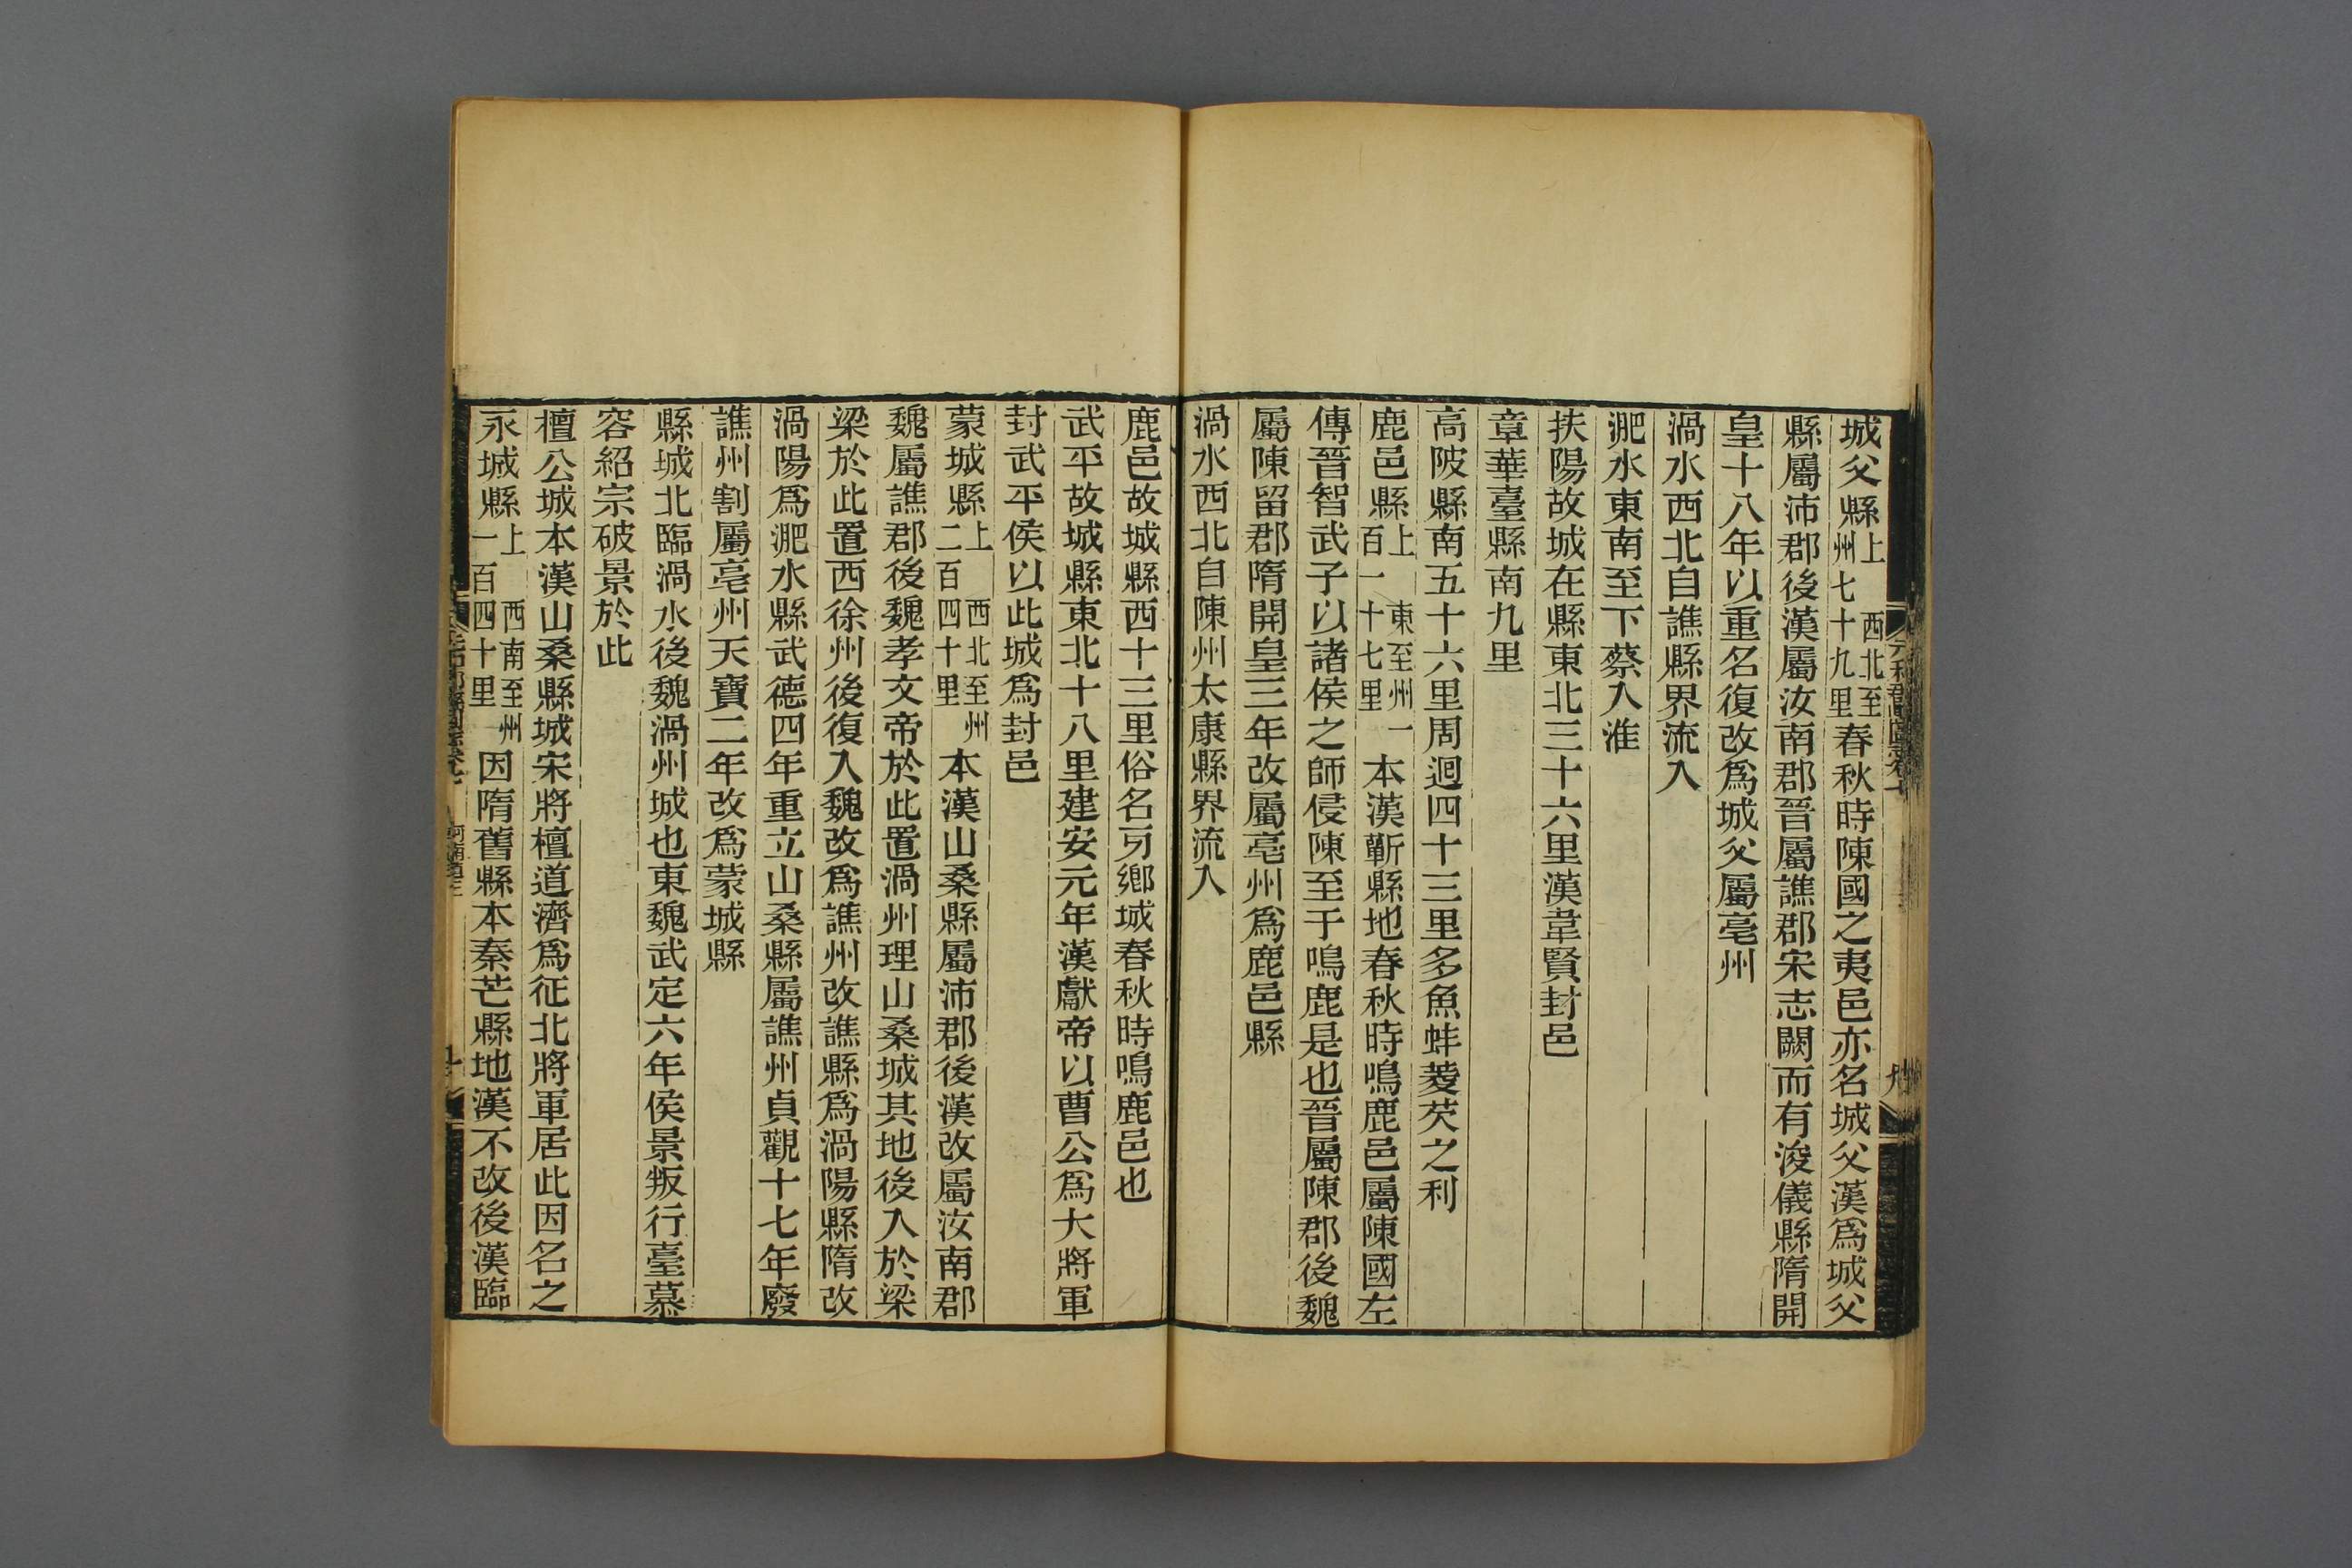 城父縣上西北至州七十九里春秋時陳國之夷邑亦名城父漢爲城父
縣屬沛郡後漢屬汝南郡晉屬譙郡宋志闕而有浚儀縣隋開
皇十八年以重名復改爲城父屬亳州
渦水西北自譙縣界流入
淝水東南至下蔡入淮
扶陽故城在縣東北三十六里漢韋賢封邑
章華臺縣南九里
高陂縣南五十六里周迴四十三里多魚蚌菱芡之利
鹿邑縣上東至州一百一十七里本漢鄲縣地春秋時鳴鹿邑屬陳國左
傳晉智武子以諸侯之師侵陳至于鳴鹿是也晉屬陳郡後魏
屬陳留郡隋開皇三年改屬亳州爲鹿邑縣
渦水西北自陳州太康縣界流入
鹿邑故城縣西十三里俗名牙鄉城春秋時鳴鹿邑也
武平故城縣東北十八里建安元年漢獻帝以曹公爲大將軍
封武平侯以此城爲封邑
蒙城縣上西北至州二百四十里本漢山桑縣屬沛郡後漢改屬汝南郡
魏屬譙郡後魏孝文帝於此置渦州理山桑城其地後入於梁
梁於此置西徐州後復入魏改爲譙州改譙縣爲渦陽縣隋改
渦陽爲淝水縣武德四年重立山桑縣屬譙州貞觀十七年廢
譙州割屬亳州天寶二年改爲蒙城縣
縣城北臨渦水後魏渦州城也東魏武定六年侯景叛行臺慕
容紹宗破景於此
檀公城本漢山桑縣城宋將檀道濟爲征北將軍居此因名之
永城縣上西南至州一百四十里因隋舊縣本秦芒縣地漢不改後漢臨